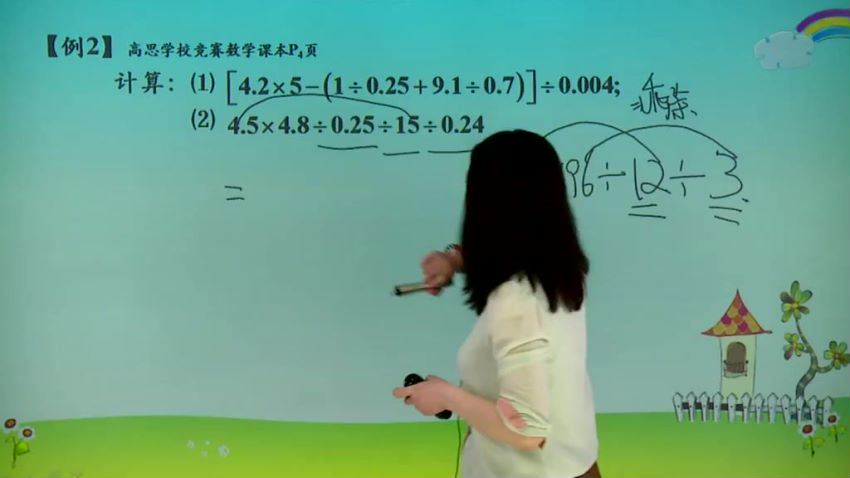 【例2】 高思学校竞赛数学课本P₄页
计算： (1) [4.2×5−(1÷0.25+9.1÷0.7)]÷0.004;
(2) 4.5×4.8÷0.25÷15÷0.24
96÷12÷3
=